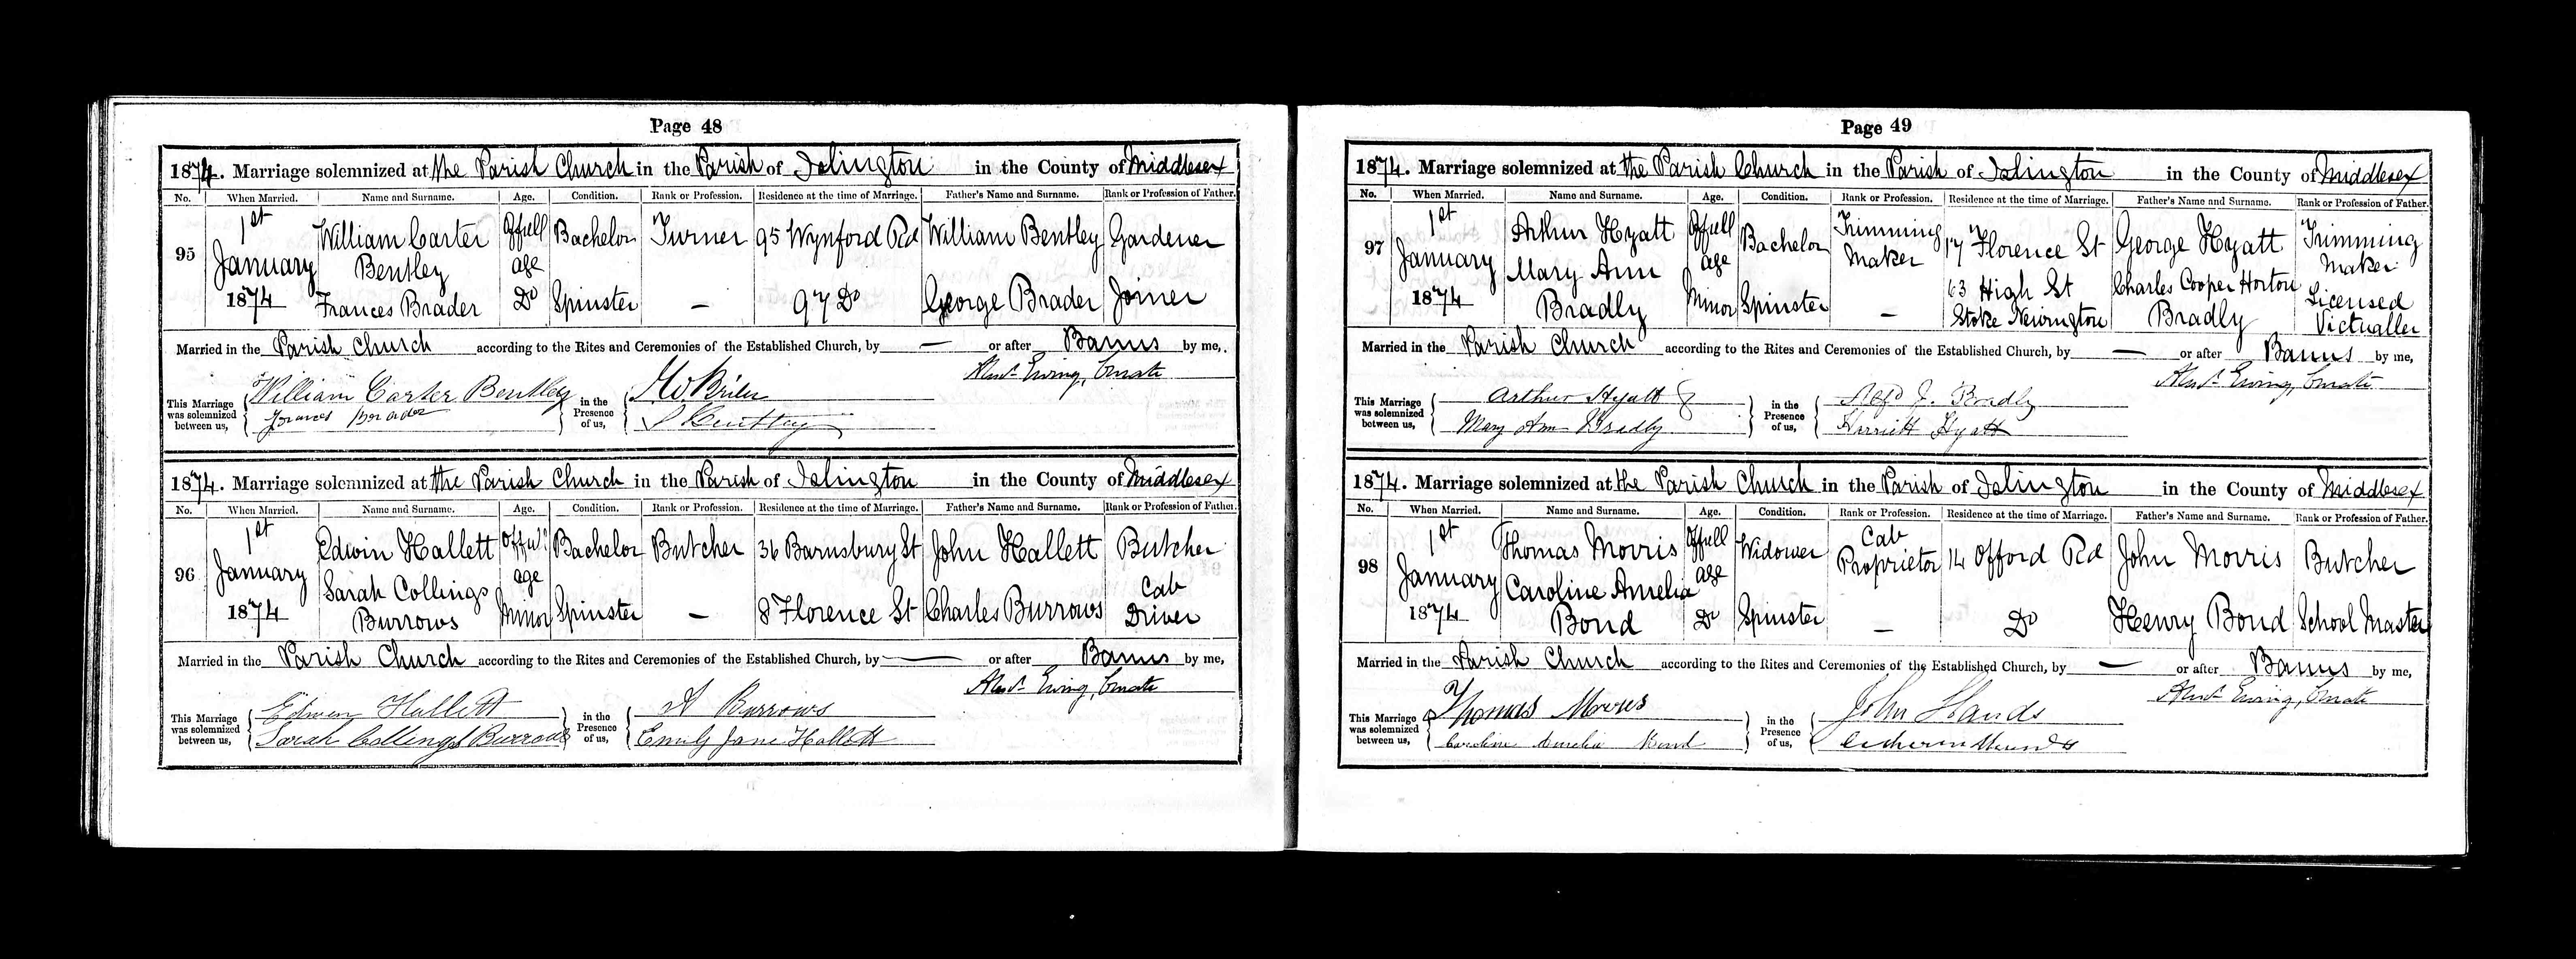 Page 48
1874. Marriage solemnized at the Parish Church in the Parish of Islington in the County of Middlesex
No. When Married. Name and Surname. Age. Condition. Rank or Profession. Residence at the time of Marriage. Father's Name and Surname. Rank or Profession of Father.
95 1st January 1874 William Carter Bentley Of full age Bachelor Turner 95 Wynford Rd William Bentley Gardener
Frances Brader Do Spinster – 97 Do George Brader Joiner
Married in the Parish Church according to the Rites and Ceremonies of the Established Church, by — or after Banns by me,
Alexr. Ewing, Curate
This Marriage was solemnized between us, William Carter Bentley
Frances Brader
in the Presence of us,
Bentley
1874. Marriage solemnized at the Parish Church in the Parish of Islington in the County of Middlesex
No. When Married. Name and Surname. Age. Condition. Rank or Profession. Residence at the time of Marriage. Father's Name and Surname. Rank or Profession of Father.
96 1st January 1874 Edwin Hallett Of full age Bachelor Butcher 36 Barnsbury St John Hallett Butcher
Sarah Collings Burrows Minor Spinster – 8 Florence St Charles Burrows Cab Driver
Married in the Parish Church according to the Rites and Ceremonies of the Established Church, by — or after Banns by me,
Alexr. Ewing, Curate
This Marriage was solemnized between us, Edwin Hallett
Sarah Collings Burrows
in the Presence of us, A Burrows
Emily Jane Hallett
Page 49
1874. Marriage solemnized at the Parish Church in the Parish of Islington in the County of Middlesex
No. When Married. Name and Surname. Age. Condition. Rank or Profession. Residence at the time of Marriage. Father's Name and Surname. Rank or Profession of Father.
97 1st January 1874 Arthur Hyatt Of full age Bachelor Trimming Maker 17 Florence St George Hyatt Trimming Maker
Mary Ann Bradly Minor Spinster – 63 High St Stoke Newington Charles Cooper Horton Bradly Licensed Victualler
Married in the Parish Church according to the Rites and Ceremonies of the Established Church, by — or after Banns by me,
Alexr. Ewing, Curate
This Marriage was solemnized between us, Arthur Hyatt
Mary Ann Bradly
in the Presence of us, Alfd J. Bradly
Harriett Hyatt
1874. Marriage solemnized at the Parish Church in the Parish of Islington in the County of Middlesex
No. When Married. Name and Surname. Age. Condition. Rank or Profession. Residence at the time of Marriage. Father's Name and Surname. Rank or Profession of Father.
98 1st January 1874 Thomas Morris Of full age Widower Cab Proprietor 14 Offord Rd John Morris Butcher
Caroline Amelia Bond Do Spinster – Do Henry Bond School Master
Married in the Parish Church according to the Rites and Ceremonies of the Established Church, by — or after Banns by me,
Alexr. Ewing, Curate
This Marriage was solemnized between us, Thomas Morris
Caroline Amelia Bond
in the Presence of us, John Hands